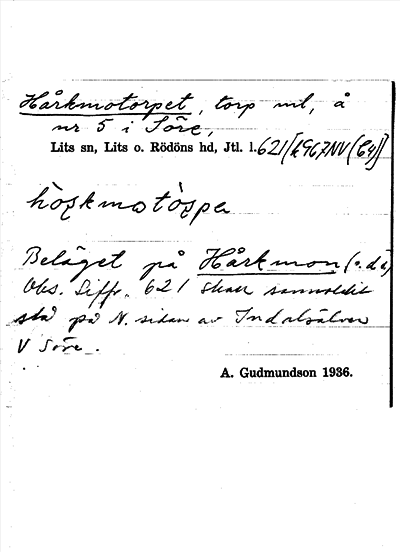 Hårkmotorpet, torp uml, å
nr 5 i Söre,
Lits sn, Lits o. Rödöns hd, Jtl. l. 621 [k967NV (C4)]
Beläget på Hårkmon (o. d. a)
Obs. Siffr. 621 skall sannolikt
stå på N. sidan av Indalsälven
V Söre.
A. Gudmundson 1936.